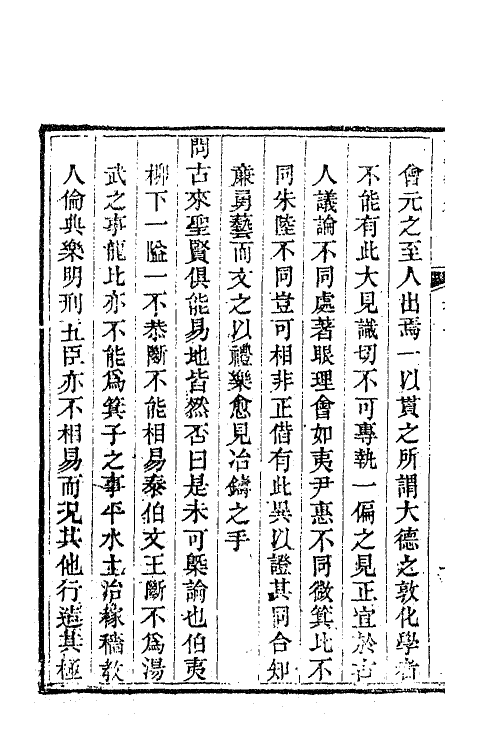 會元之至人出焉一以貫之所謂大德之敦化學者
不能有此大見識切不可專執一偏之見正宜於古
人議論不同處著眼理會如夷尹惠不同微箕比不
同朱陸不同豈可相非正借有此異以證其同合知
廉勇藝而文之以禮樂愈見冶鑄之手
問古來聖賢俱能易地皆然否曰是未可槩論也伯夷
柳下一隘一不恭斷不能相易泰伯文王斷不為湯
武之事龍比亦不能爲箕子之事平水土治稼穡敎
人倫典樂明刑五臣亦不相易而況其他行造其極